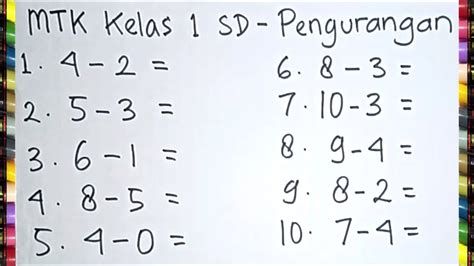 MTK Kelas 1 SD - Pengurangan
1. 4 - 2 =
2. 5 - 3 =
3. 6 - 1 =
4. 8 - 5 =
5. 4 - 0 =
6. 8 - 3 =
7. 10 - 3 =
8. 9 - 4 =
9. 8 - 2 =
10. 7 - 4 =